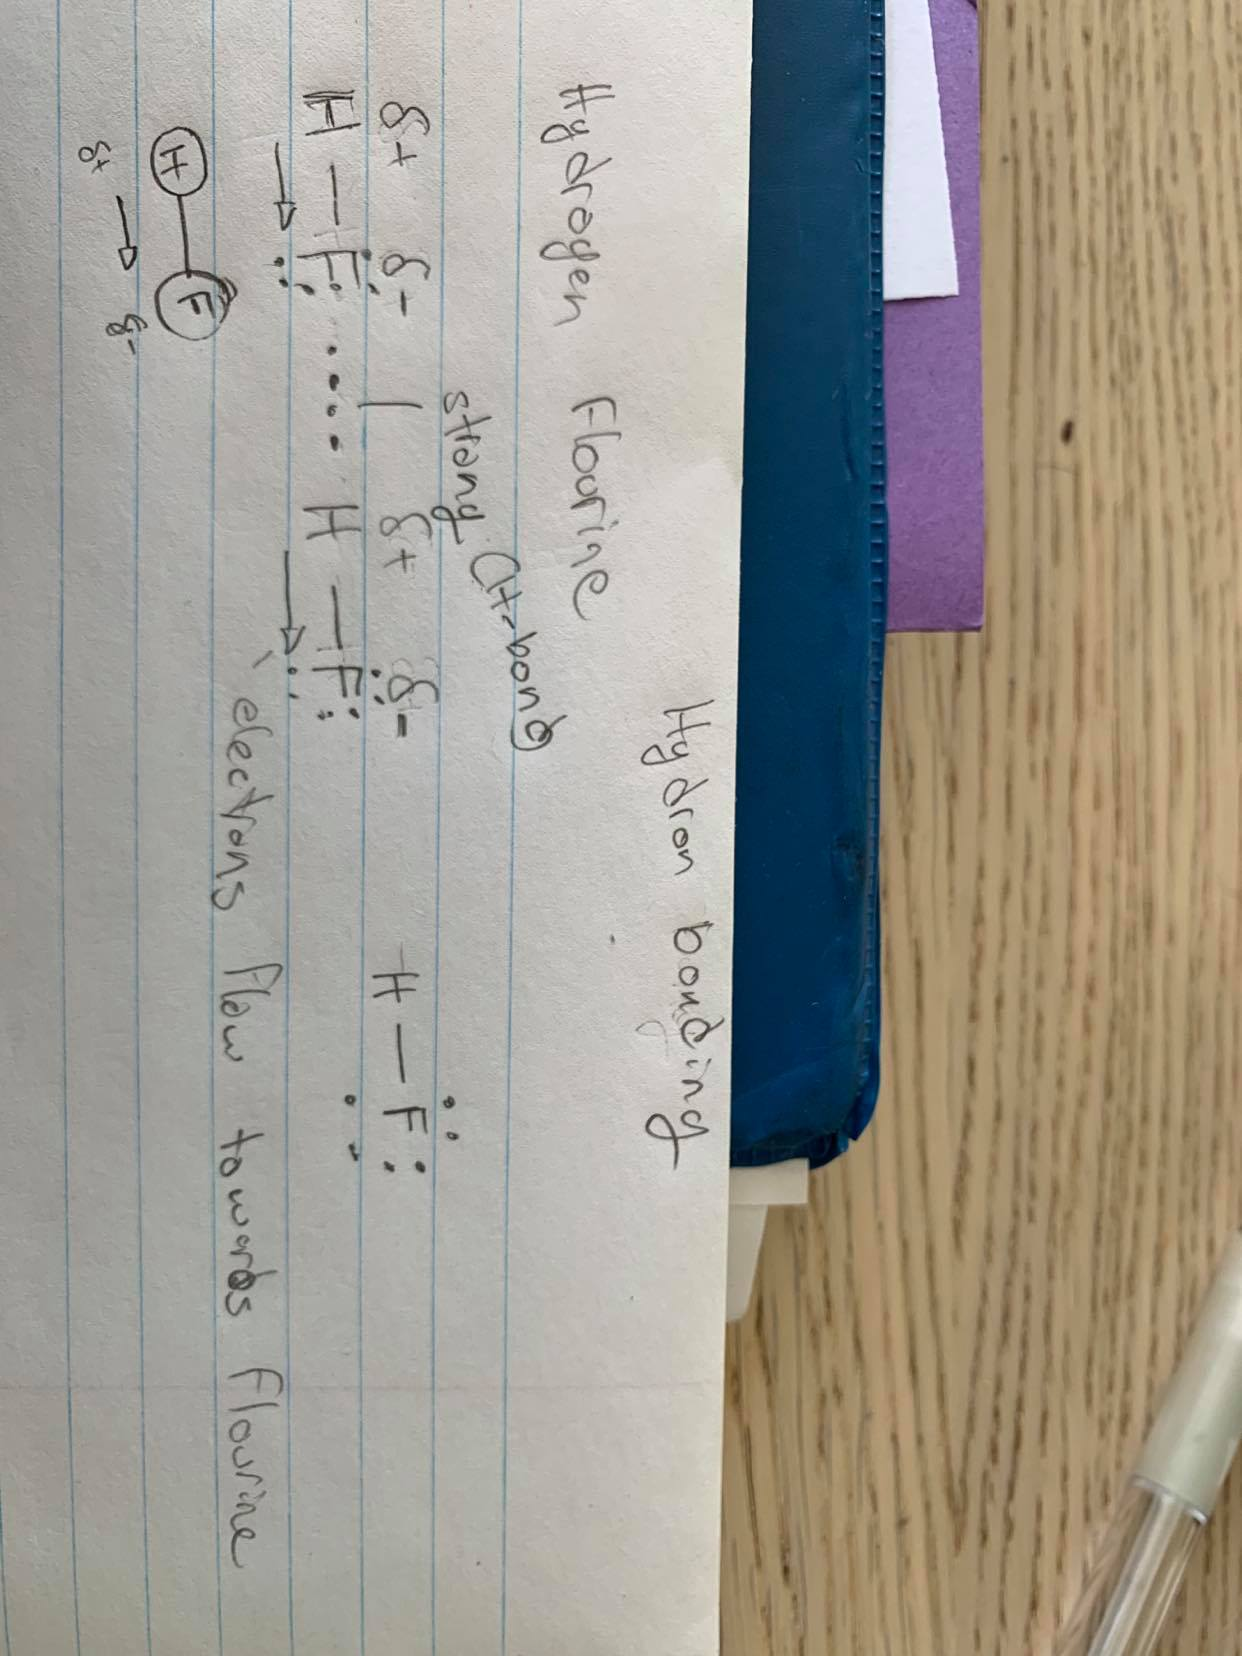 Hydron bonding
Hydrogen Flourine
strong (H-bond)
δ+ δ- | δ+ δ-
H — F: •••• H — F:
H — F:
→ →
electrons flow towards flourine
H — F
δ+ → δ-